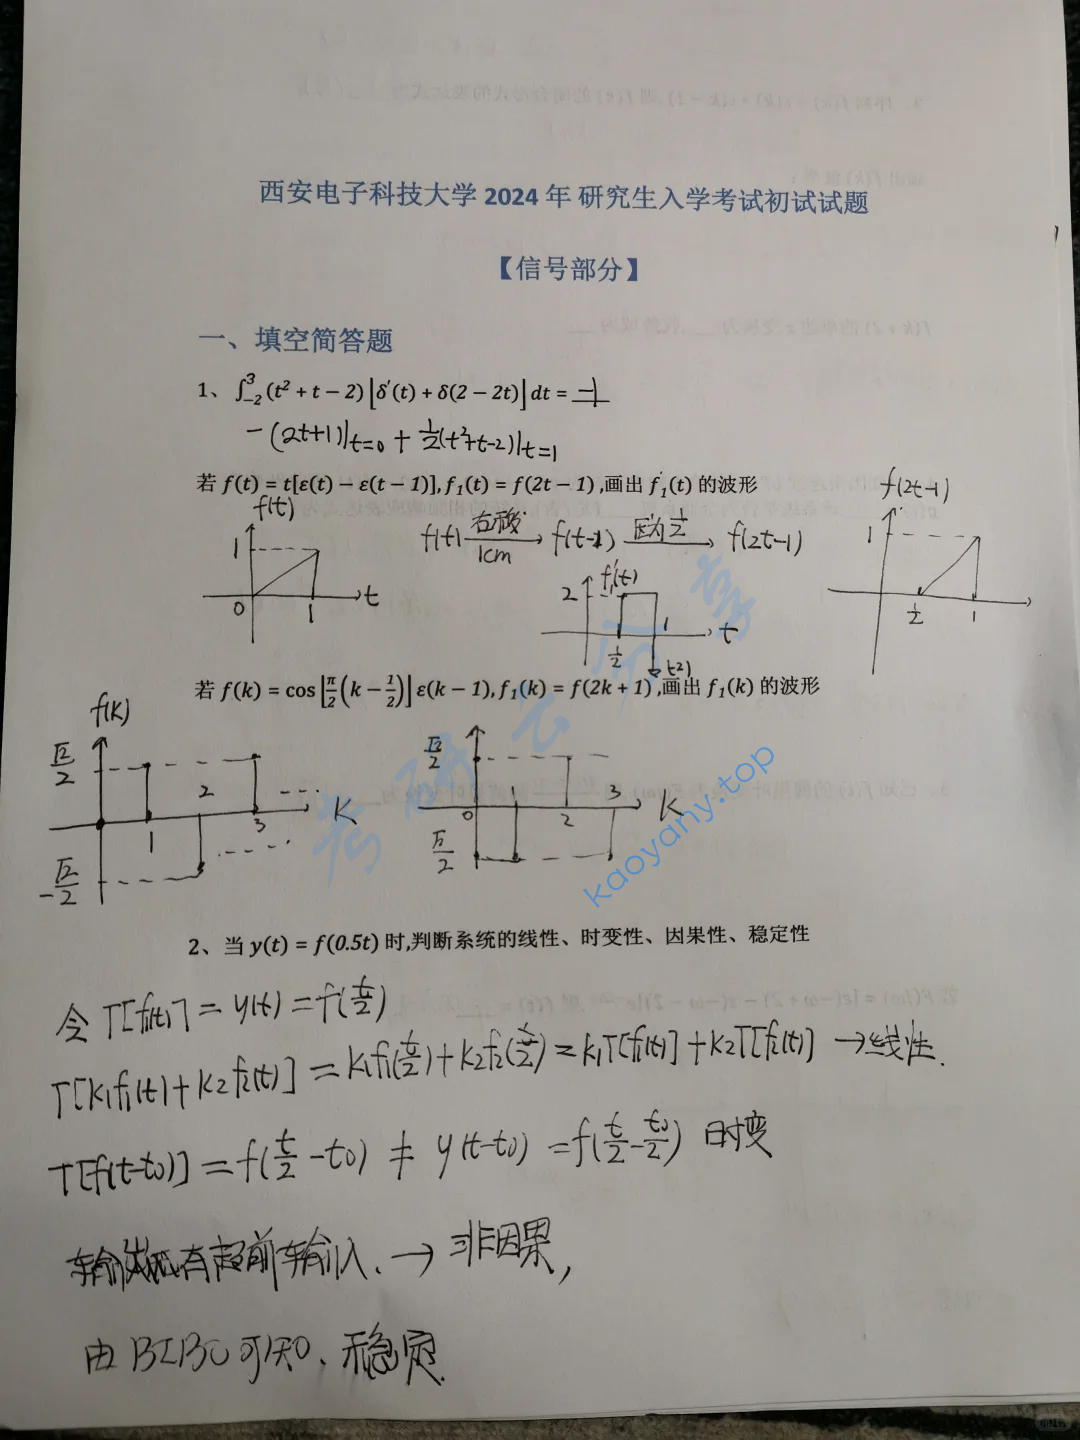 西安电子科技大学 2024 年 研究生入学考试初试试题
【信号部分】
一、填空简答题
1、∫₋₂³ (t² + t − 2)[δ′(t) + δ(2 − 2t)]dt = −1
−(2t+1)|t=0 + ½(t²+t−2)|t=1
若 f(t) = t[ε(t) − ε(t − 1)], f₁(t) = f(2t − 1) ,画出 f₁′(t) 的波形
f(t)
1
0
1
t
f(t) 右移 1cm → f(t-1) 压为½ → f(2t-1)
f₁′(t)
2
½
1
t
(2)
f(2t-1)
1
½
1
若 f(k) = cos[π/2(k − 1/2)]ε(k − 1), f₁(k) = f(2k + 1) ,画出 f₁(k) 的波形
f(k)
√2/2
−√2/2
1
2
3
K
√2/2
√2/2
0
1
2
3
K
考研云分享
kaoyany.top
2、当 y(t) = f(0.5t) 时,判断系统的线性、时变性、因果性、稳定性
令 T[f(t)] = y(t) = f(t/2)
T[k₁f₁(t)+k₂f₂(t)] = k₁f₁(t/2)+k₂f₂(t/2) = k₁T[f₁(t)]+k₂T[f₂(t)] → 线性.
T[f(t-t₀)] = f(t/2 − t₀) ≠ y(t-t₀) = f(t/2 − t₀/2) 时变
有超前输入. → 非因果,
由BIBO可知、稳定.